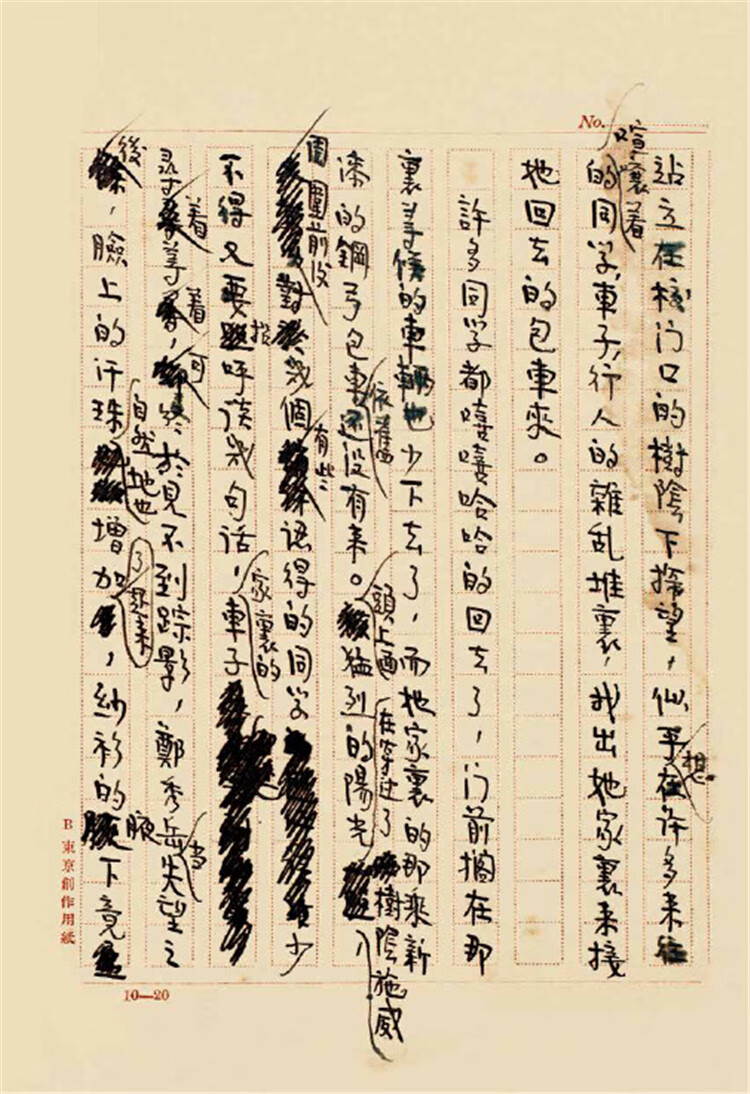 No.
站立在校门口的樹陰下探望，似乎想在许多来往
喧嚷着的同学，車子，行人的雜乱堆裏，找出她家裏来接
她回去的包車來。
許多同学都嘻嘻哈哈的回去了，门前搁在那
裏等候的車輛也少下去了，而她家裏的那乘新
漆的鋼弓包車依舊還没有来。頭上面猛烈的陽光在穿过了樹陰施威，
周圍前後對幾個有些認得的同学少
不得又要招呼谈幾句话，家裏的車子
尋着等着，可終於見不到踪影，鄭秀岳當失望之
後，臉上的汗珠自然地也增加了起来，紗衫的腋下竟
B 東京創作用紙
10—20